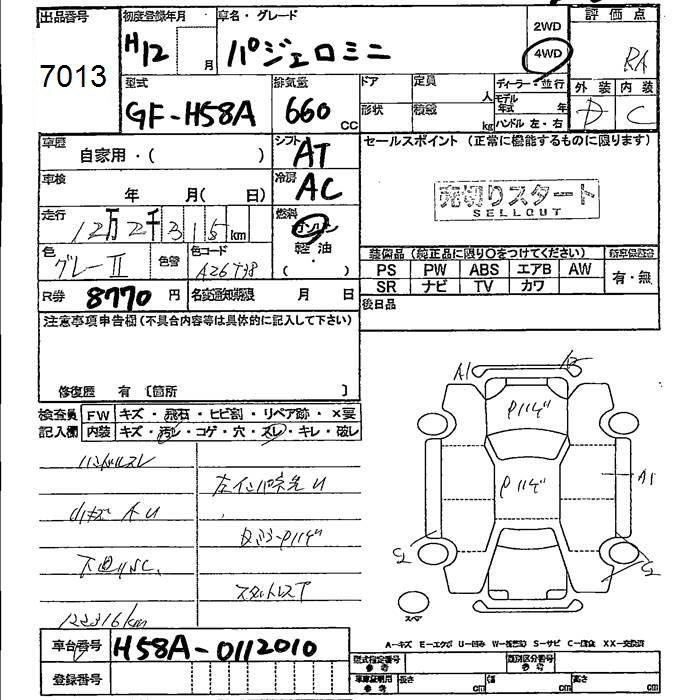 出品番号
初度登録年月
車名・グレード
評価点
7013
H12
月
パジェロミニ
2WD
4WD
RA
型式
GF-H58A
排気量
660
CC
ドア
定員
人
ディーラー・並行
外装
内装
形状
積載
kg
モデル
年式
年
ハンドル 左・右
D
C
車歴
自家用・( )
シフト
AT
セールスポイント (正常に機能するものに限ります)
車検
年 月( 日)
冷房
AC
売切りスタート
SELLOUT
走行
12万2千315km
燃料
ガソリン
軽油
・
( )
色
グレーII
色替
色コード
A26T38
装備品 (純正品に限り○をつけてください)
新車保証書
PS
PW
ABS
エアB
AW
有・無
SR
ナビ
TV
カワ
R券
8770
円
名変通知期限
月 日
後日品
注意事項申告欄(不具合内容等は具体的に記入して下さい)
修復歴 有 〔箇所 〕
検査員
記入欄
FW
キズ・飛石・ヒビ割・リペア跡・×要
内装
キズ・汚レ・コゲ・穴・スレ・キレ・破レ
ハンドルスレ
小キズ 大U
122316km
スタットレスT
A1
A1
スペア
A-キズ E-エクボ U-凹ミ S-サビ C-腐食 XX-交換済
車台番号
H58A-0112010
登録番号
型式指定番号
参考
類別区分番号
参考
車庫証明用
参考
長さ
cm
幅
cm
高さ
cm